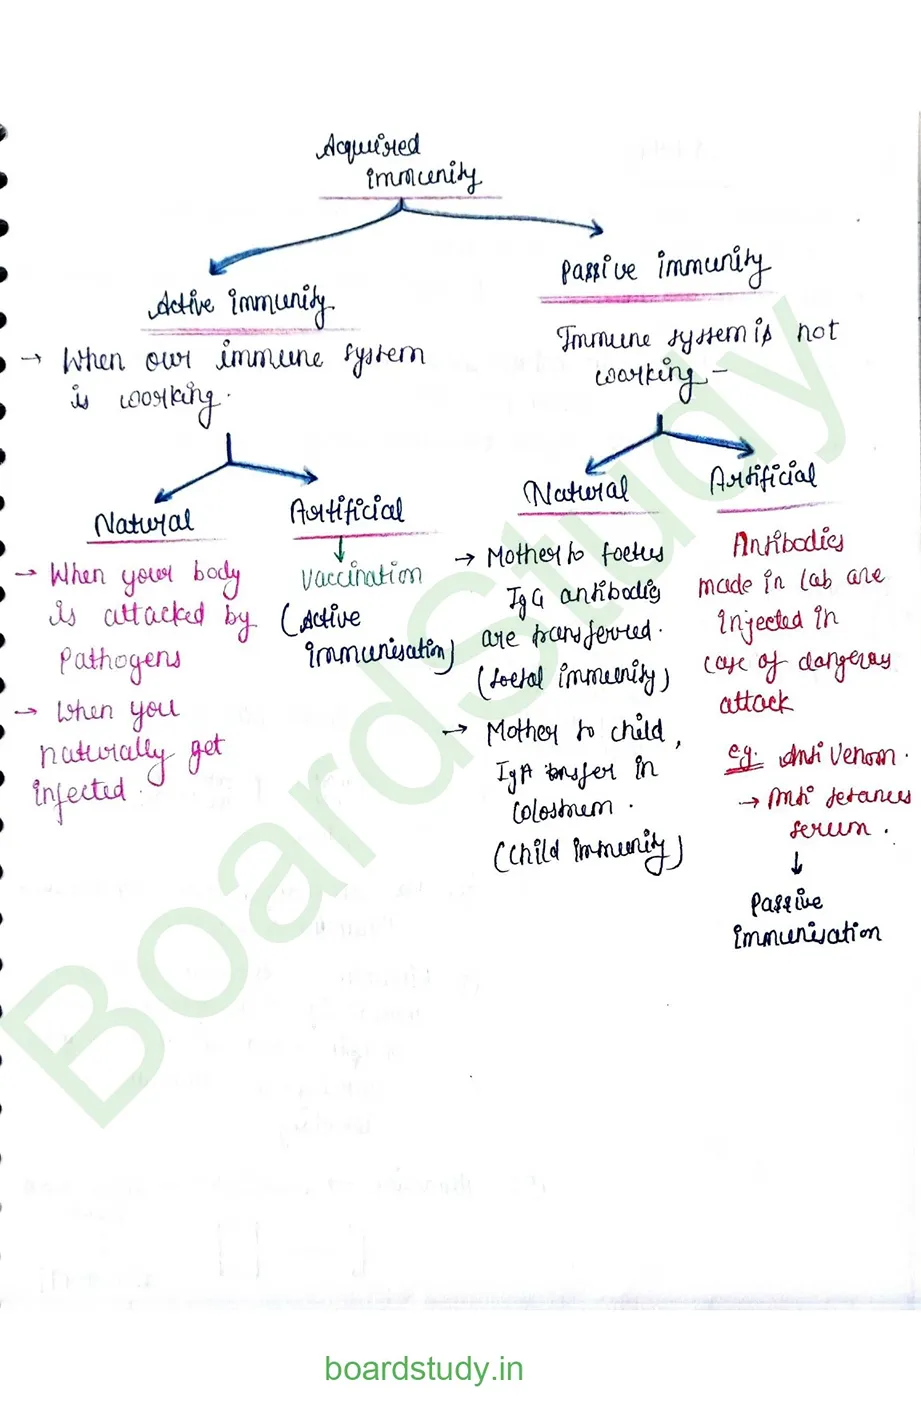 Acquired
immunity
Active immunity
→ When our immune system
is working.
Natural
→ When your body
is attacked by
pathogens
→ When you
naturally get
infected.
Artificial
Vaccination
(Active
immunisation)
Passive immunity
Immune system is not
working –
Natural
→ Mother to foetus
IgG antibodies
are transferred.
(foetal immunity)
→ Mother to child,
IgA transfer in
colostrum.
(Child immunity)
Artificial
Antibodies
made in lab are
injected in
case of dangerous
attack
eg. Anti venom.
→ Anti tetanus
serum.
Passive
immunisation
BoardStudy
boardstudy.in